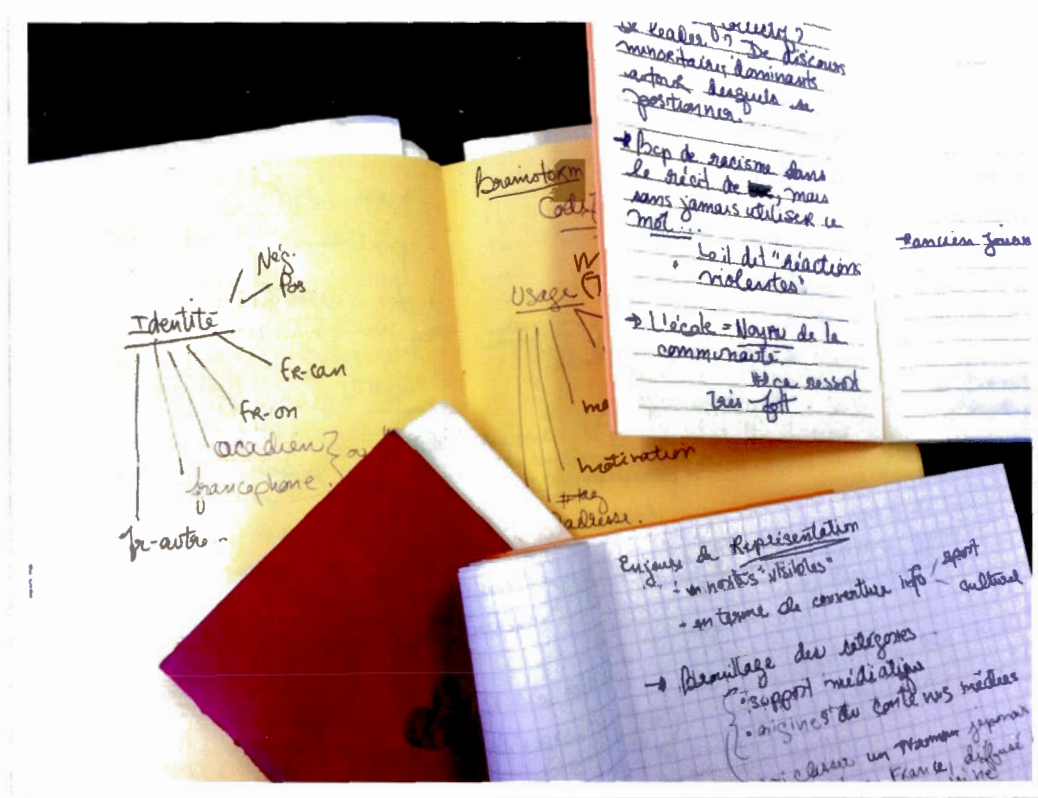 Brainstorm
Nég.
Pos
Identité
Fr-can
Fr-on
acadien
francophone
Fr-autre
Usage
motivation
adresse.
De leader ? De discours
minoritaires dominants
autour desquels se
positionner.
→ Bcp de racisme dans
le récit de , mais
sans jamais utiliser ce
mot...
Lo il dit "réactions
violentes"
→ L'école = Noyau de la
communauté.
ça ressort
Très fort
Enjeux de Représentation
"visibles"
• en terme de couverture info sport
culturel
→ Brouillage des catégories
• support médiatique
• origines du contenus médias
classer un japonais
France, diffusé